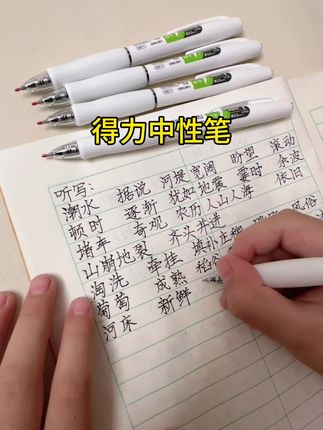 得力中性笔
听写:
潮水 据说 河堤 宽阔 盼望 滚动
顿时 逐渐 犹如 地震 霎时 余波
堵车 奇观 农历 人山人海 依旧
山崩地裂 齐头并进
淘洗 牵挂 风俗
葡萄 成熟 稻谷
河床 新鲜